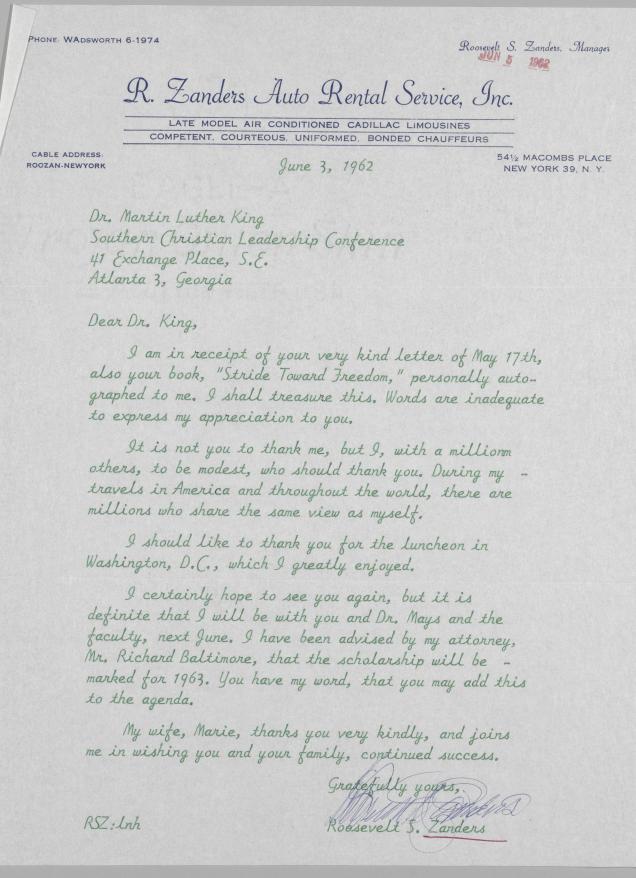 PHONE: WADSWORTH 6-1974
Roosevelt S. Zanders, Manager
JUN 5 1962
R. Zanders Auto Rental Service, Inc.
LATE MODEL AIR CONDITIONED CADILLAC LIMOUSINES
COMPETENT, COURTEOUS, UNIFORMED, BONDED CHAUFFEURS
CABLE ADDRESS:
ROOZAN-NEWYORK
54½ MACOMBS PLACE
NEW YORK 39, N. Y.
June 3, 1962
Dr. Martin Luther King
Southern Christian Leadership Conference
41 Exchange Place, S.E.
Atlanta 3, Georgia
Dear Dr. King,
I am in receipt of your very kind letter of May 17th,
also your book, "Stride Toward Freedom," personally auto-
graphed to me. I shall treasure this. Words are inadequate
to express my appreciation to you.
It is not you to thank me, but I, with a millionm
others, to be modest, who should thank you. During my -
travels in America and throughout the world, there are
millions who share the same view as myself.
I should like to thank you for the luncheon in
Washington, D.C., which I greatly enjoyed.
I certainly hope to see you again, but it is
definite that I will be with you and Dr. Mays and the
faculty, next June. I have been advised by my attorney,
Mr. Richard Baltimore, that the scholarship will be -
marked for 1963. You have my word, that you may add this
to the agenda.
My wife, Marie, thanks you very kindly, and joins
me in wishing you and your family, continued success.
Gratefully yours,
Roosevelt S. Zanders
RSZ:lnh